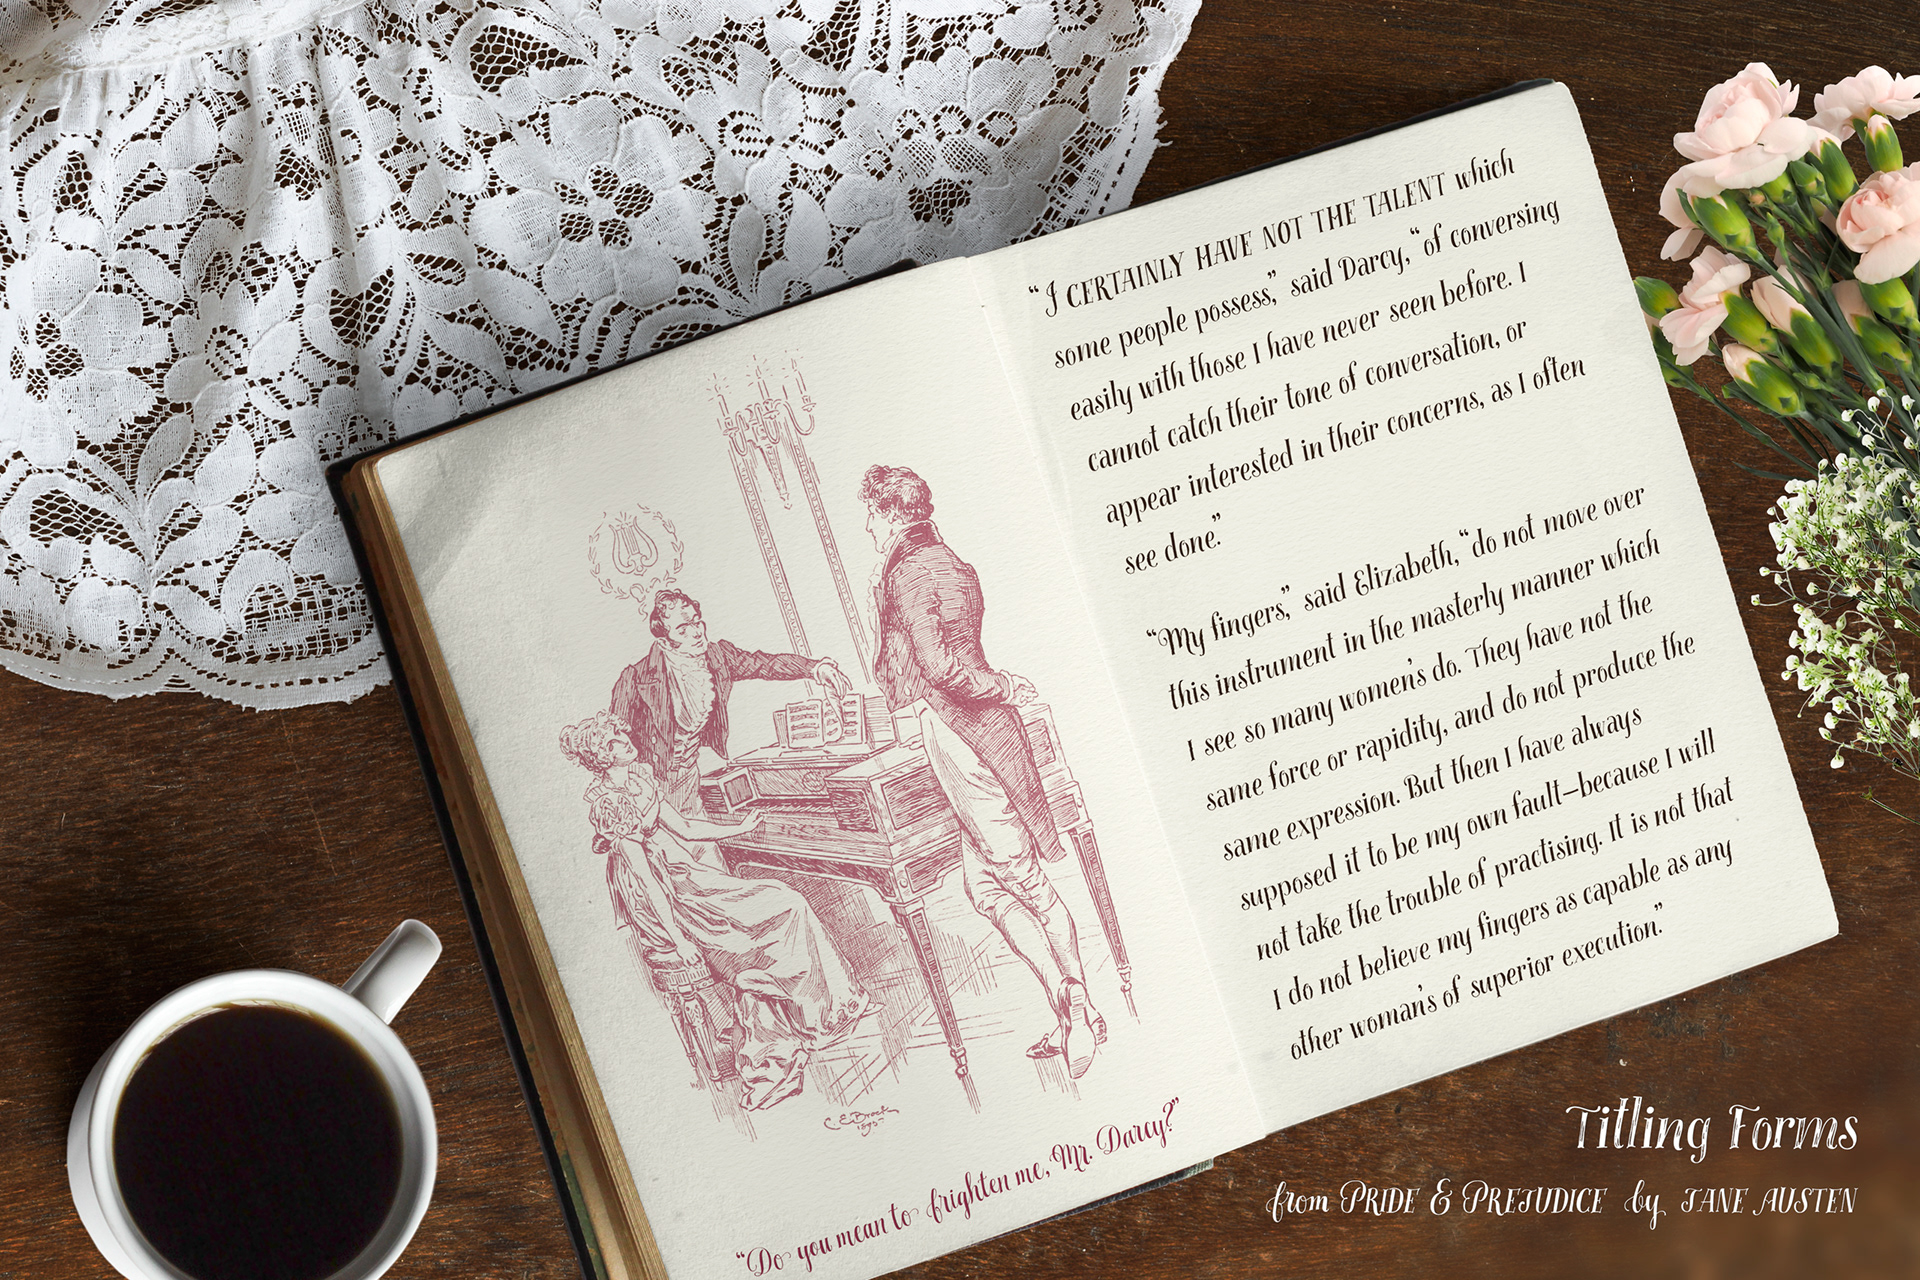 C. E. Brock
1895
“Do you mean to frighten me, Mr. Darcy?”
“I CERTAINLY HAVE NOT THE TALENT which
some people possess,” said Darcy, “of conversing
easily with those I have never seen before. I
cannot catch their tone of conversation, or
appear interested in their concerns, as I often
see done.”
“My fingers,” said Elizabeth, “do not move over
this instrument in the masterly manner which
I see so many women’s do. They have not the
same force or rapidity, and do not produce the
same expression. But then I have always
supposed it to be my own fault—because I will
not take the trouble of practising. It is not that
I do not believe my fingers as capable as any
other woman’s of superior execution.”
Titling Forms
from PRIDE & PREJUDICE by JANE AUSTEN